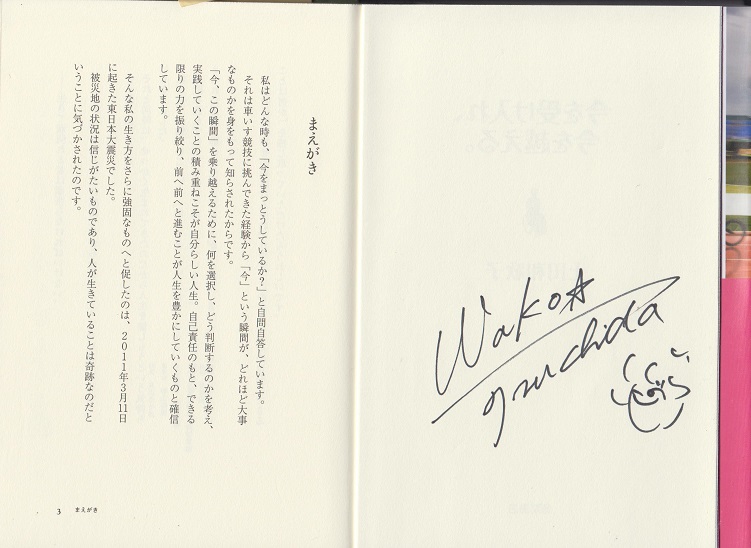 Wako
Tsuchida
まえがき
私はどんな時も、「今をまっとうしているか?」と自問自答しています。
それは車いす競技に挑んできた経験から「今」という瞬間が、どれほど大事
なものかを身をもって知らされたからです。
「今、この瞬間」を乗り越えるために、何を選択し、どう判断するのかを考え、
実践していくことの積み重ねこそが自分らしい人生。自己責任のもと、できる
限りの力を振り絞り、前へ前へと進むことが人生を豊かにしていくものと確信
しています。
そんな私の生き方をさらに強固なものへと促したのは、2011年3月11日
に起きた東日本大震災でした。
被災地の状況は信じがたいものであり、人が生きていることは奇跡なのだと
いうことに気づかされたのです。
3 まえがき